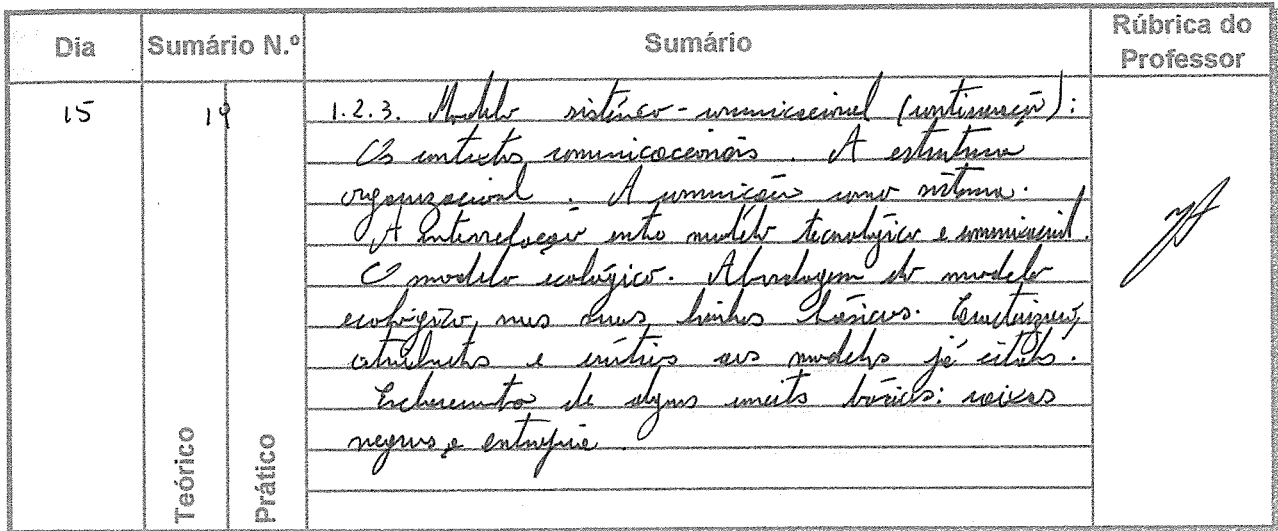 Dia Sumário N.º Sumário Rúbrica do Professor
15 19 1.2.3. Modelo sistémico-comunicacional (continuação):
Os contextos comunicacionais. A estrutura
organizacional. A comunicação como sistema.
A interrelação entre modelo tecnológico e comunicacional.
O modelo ecológico. Abordagem do modelo
ecológico, nas suas linhas básicas. Caracterização,
atributos e críticas aos modelos já citados.
Esclarecimento de alguns conceitos básicos: caixas
negras e entropia.
Teórico
Prático